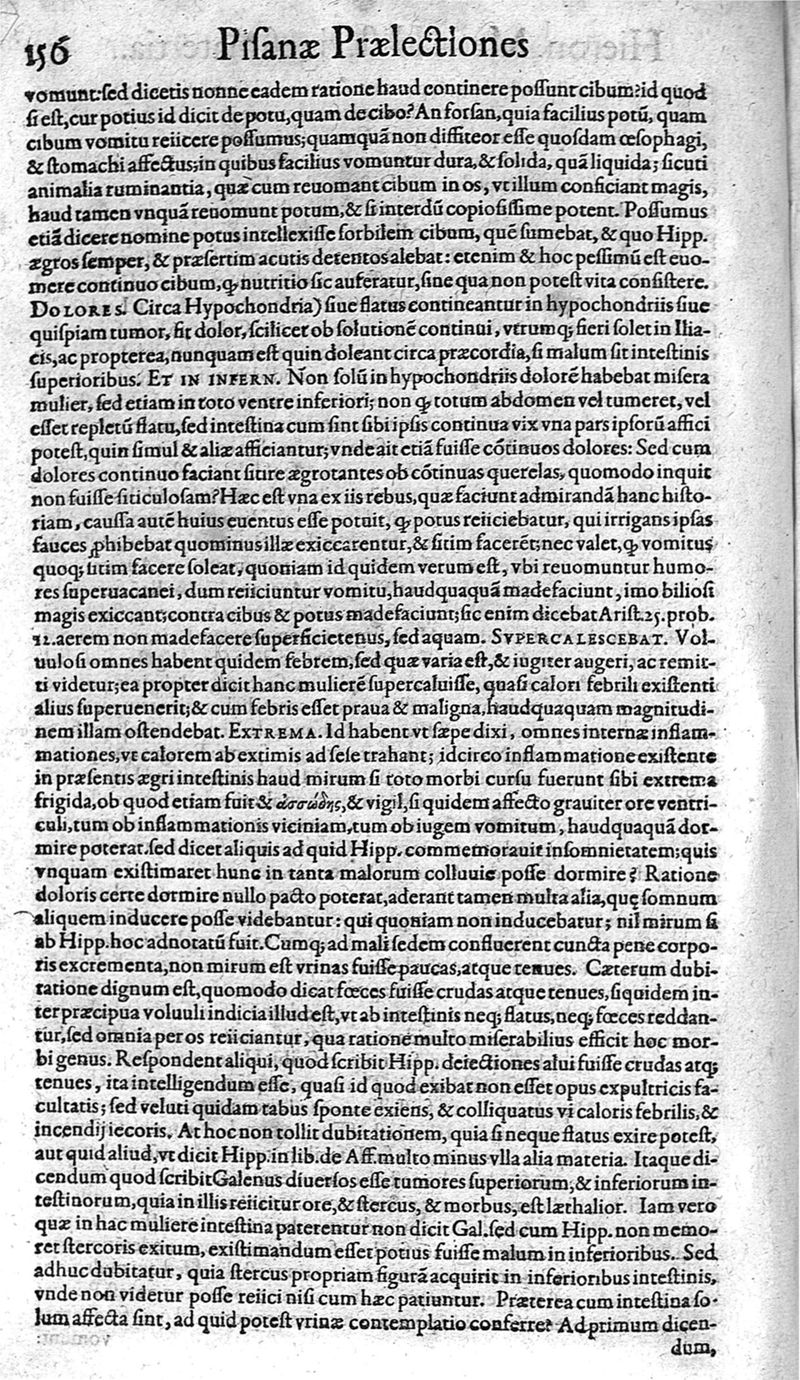 156 Piſanæ Prælectiones
vomunt:ſed dicetis nonne eadem ratione haud continere poſſunt cibum?id quod
ſi eſt,cur potius id dicit de potu,quam de cibo?An forſan,quia facilius potū, quam
cibum vomitu reiicere poſſumus;quamquā non diffiteor eſſe quoſdam œſophagi,
& ſtomachi affectus;in quibus facilius vomuntur dura,& ſolida, quā liquida; ſicuti
animalia ruminantia, quæ cum reuomant cibum in os, vt illum conficiant magis,
haud tamen vnquā reuomunt potum,& ſi interdū copioſiſſime potent. Poſſumus
etiā dicere nomine potus intellexiſſe ſorbilem cibum, quē ſumebat, & quo Hipp.
ægros ſemper, & præſertim acutis detentos alebat: etenim & hoc peſſimū eſt euo-
mere continuo cibum, ꝙ nutritio ſic auferatur,ſine qua non poteſt vita conſiſtere.
DOLORES. Circa Hypochondria) ſiue flatus contineantur in hypochondriis ſiue
quiſpiam tumor, fit dolor, ſcilicet ob ſolutionē continui, vtrumq; fieri ſolet in Ilia-
cis,ac propterea,nunquam eſt quin doleant circa præcordia,ſi malum ſit inteſtinis
ſuperioribus. ET IN INFERN. Non ſolū in hypochondriis dolorē habebat miſera
mulier, ſed etiam in toto ventre inferiori; non ꝙ totum abdomen vel tumeret, vel
eſſet repletū flatu,ſed inteſtina cum ſint ſibi ipſis continua vix vna pars ipſorū affici
poteſt,quin ſimul & aliæ afficiantur;vnde ait etiā fuiſſe cōtinuos dolores: Sed cum
dolores continuo faciant ſitire ægrotantes ob cōtinuas querelas, quomodo inquit
non fuiſſe ſiticuloſam?Hæc eſt vna ex iis rebus,quæ faciunt admirandā hanc hiſto-
riam, cauſſa autē huius euentus eſſe potuit, ꝙ potus reiiciebatur, qui irrigans ipſas
fauces ꝓhibebat quominus illæ exiccarentur,& ſitim facerēt;nec valet,ꝙ vomitus
quoq; ſitim facere ſoleat, quoniam id quidem verum eſt, vbi reuomuntur humo-
res ſuperuacanei, dum reiiciuntur vomitu,haudquaquā madefaciunt, imo bilioſi
magis exiccant;contra cibus & potus madefaciunt;ſic enim dicebat Ariſt.25.prob.
12.aerem non madefacere ſuperficietenus, ſed aquam. SVPERCALESCEBAT. Vol-
uuloſi omnes habent quidem febrem,ſed quæ varia eſt,& iugiter augeri, ac remit-
ti videtur;ea propter dicit hanc mulierē ſupercaluiſſe, quaſi calori febrili exiſtenti
alius ſuperuenerit;& cum febris eſſet praua & maligna,haudquaquam magnitudi-
nem illam oſtendebat. EXTREMA. Id habent vt ſæpe dixi, omnes internæ inflam-
mationes,vt calorem ab extimis ad ſeſe trahant; idcirco inflammatione exiſtente
in præſentis ægri inteſtinis haud mirum ſi toto morbi curſu fuerunt ſibi extrema
frigida,ob quod etiam fuit & ἀσσώδης,& vigil,ſi quidem affecto grauiter ore ventri-
culi,tum ob inflammationis viciniam,tum ob iugem vomitum, haudquaquā dor-
mire poterat.ſed dicet aliquis ad quid Hipp.commemorauit inſomnietatem;quis
vnquam exiſtimaret hunc in tanta malorum colluuie poſſe dormire? Ratione
doloris certe dormire nullo pacto poterat,aderant tamen multa alia,quę ſomnum
aliquem inducere poſſe videbantur: qui quoniam non inducebatur; nil mirum ſi
ab Hipp.hoc adnotatū fuit.Cumq; ad mali ſedem confluerent cuncta pene corpo-
ris excrementa,non mirum eſt vrinas fuiſſe paucas,atque tenues. Cæterum dubi-
tatione dignum eſt,quomodo dicat fœces fuiſſe crudas atque tenues, ſiquidem in-
ter præcipua voluuli indicia illud eſt,vt ab inteſtinis neq; flatus,neq; fœces reddan-
tur,ſed omnia per os reiiciantur, qua ratione multo miſerabilius efficit hoc mor-
bi genus. Reſpondent aliqui, quod ſcribit Hipp. deiectiones alui fuiſſe crudas atq;
tenues, ita intelligendum eſſe, quaſi id quod exibat non eſſet opus expultricis fa-
cultatis; ſed veluti quidam tabus ſponte exiens, & colliquatus vi caloris febrilis,&
incendij iecoris. At hoc non tollit dubitationem, quia ſi neque flatus exire poteſt,
aut quid aliud,vt dicit Hipp.in lib.de Aff.multo minus vlla alia materia. Itaque di-
cendum quod ſcribit Galenus diuerſos eſſe tumores ſuperiorum,& inferiorum in-
teſtinorum,quia in illis reiicitur ore,& ſtercus, & morbus, eſt læthalior. Iam vero
quæ in hac muliere inteſtina paterentur non dicit Gal.ſed cum Hipp. non memo-
ret ſtercoris exitum, exiſtimandum eſſet potius fuiſſe malum in inferioribus. Sed
adhuc dubitatur, quia ſtercus propriam figurā acquirit in inferioribus inteſtinis,
vnde non videtur poſſe reiici niſi cum hæc patiuntur. Præterea cum inteſtina ſo-
lum affecta ſint, ad quid poteſt vrinæ contemplatio conferre? Ad primum dicen-
dum,